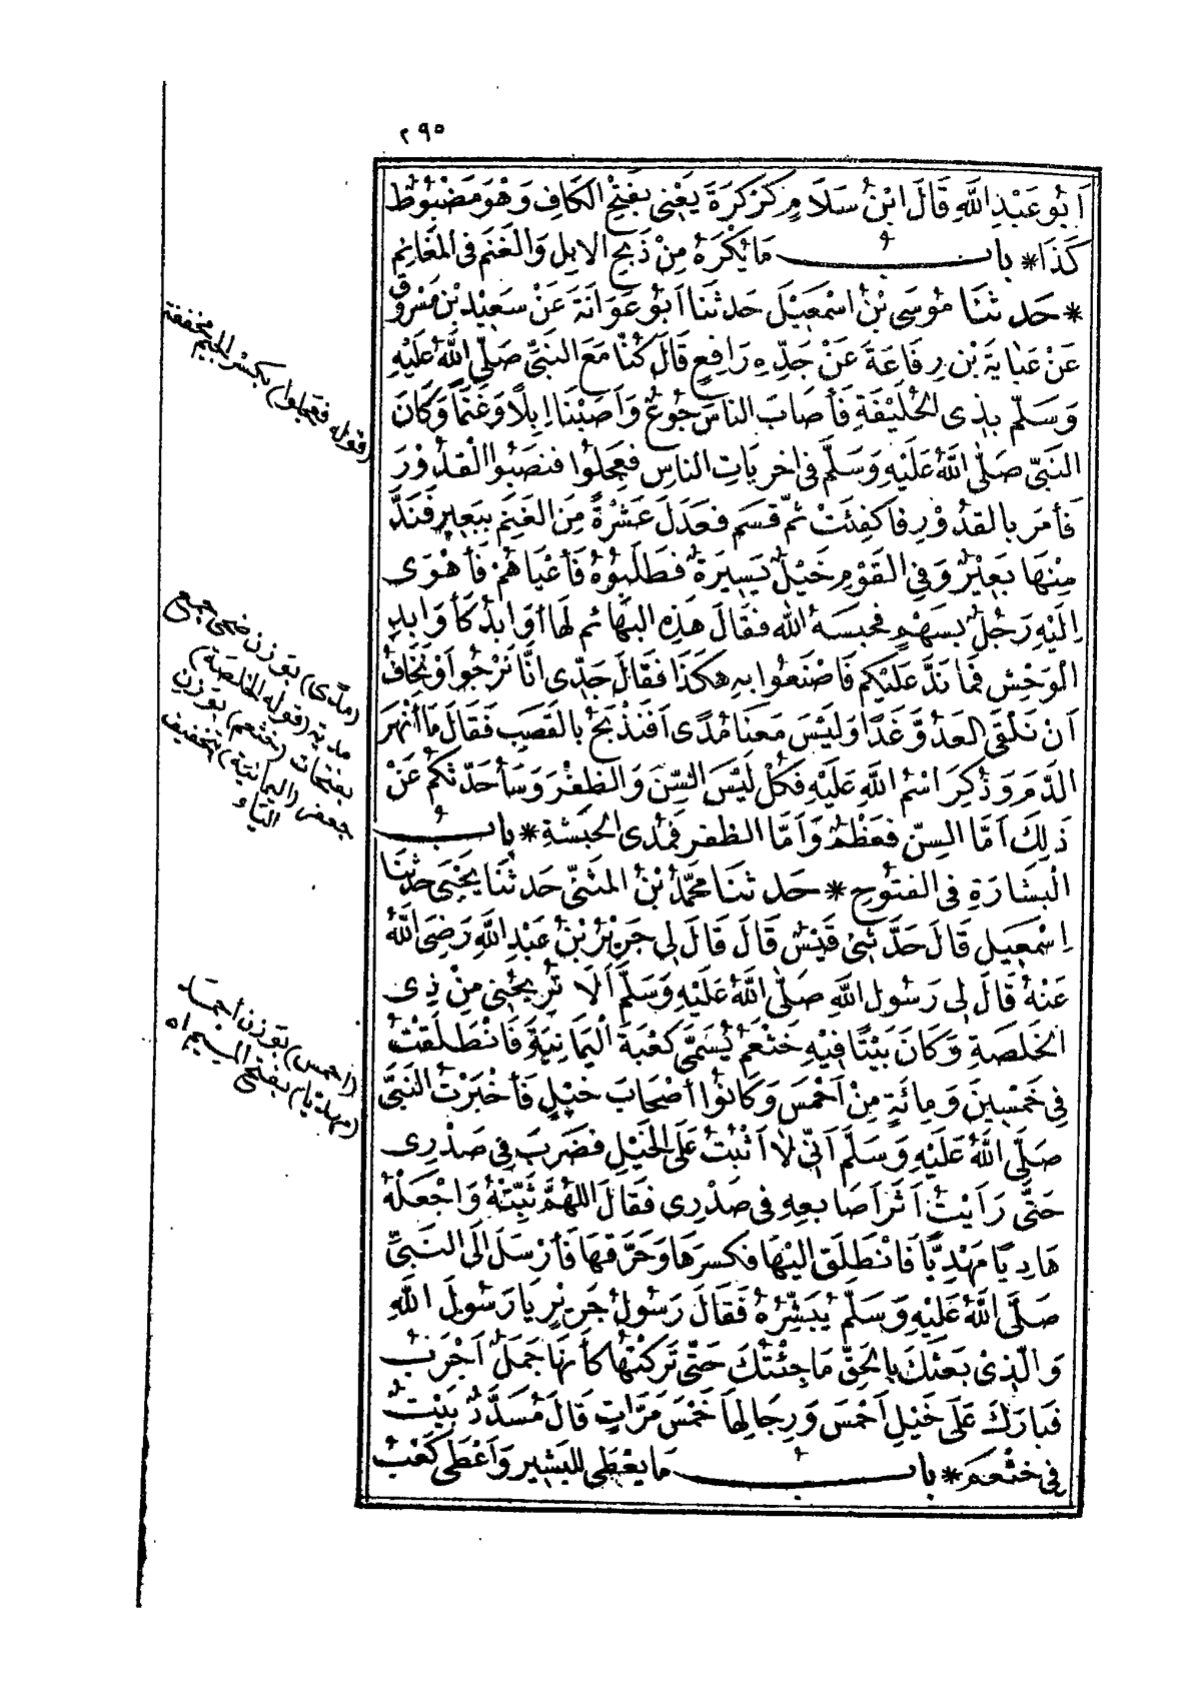 ٢٩٥
اَبُو عَبْدِ اللَّهِ قَالَ ابْنُ سَلَامٍ كَرْكَرَةَ يَعْنِي بِفَتْحِ الكَافِ وَهُوَ مَضْبُوطٌ
كَذَا * باب مَا يُكْرَهُ مِنْ ذَبْحِ الابِلِ وَالغَنَمِ فى المَغَانِمِ
* حَدثنَا مُوسَى بْنُ اسْمٰعِيلَ حَدثنَا اَبُو عَوَانَةَ عَنْ سَعِيْدِ بْنِ مَسْرُوقٍ
عَنْ عَبَايَةَ بْنِ رِفَاعَةَ عَنْ جَدِّهِ رَافِعٍ قَالَ كُنَّا مَعَ النَبِىِّ صَلَّى اللَّهُ عَلَيْهِ
وَسَلَّم بِذِى الحُلَيْفَةِ فَأَصَابَ الناسَ جُوعٌ وَاَصَبْنَا اِبِلًا وَغَنَمًا وَكَانَ
النَبِىّ صَلَّى اللَّهُ عَلَيْهِ وَسَلَّمَ فى اخرَيَاتِ الناسِ فعَجِلُوا فنَصَبُوا الْقدُورَ
فَأمَرَ بالقدُوْرِ فاكفِئَتْ ثُمّ قسَم فعَدَلَ عَشْرَةً مِنَ الغَنِمَ بِبَعِيرٍ فَنَدَّ
مِنْهَا بَعِيْرٌ وَفِى القَوْمِ خَيْلٌ يَسِيرَةٌ فطَلَبُوْهُ فَأعْيَاهُمْ فَأهْوَى
اِلَيْهِ رَجُلٌ بسَهْمٍ فحبَسَهُ الله فقالَ هَذِهِ البهَائم لهَا أوَابدُ كَأوَابِدِ
الْوَحْشِ فمَا نَدَّ عَلَيْكُم فَاصْنَعُوا بهِ هكَذَا فقَالَ جَدِّى انَّا نَرْجُوا اَوْ نَخَافُ
اَنْ نَلْقَى العَدُوَّ غَدًا وَلَيْسَ مَعَنَا مُدًى اَفَنَذْبَحُ بالقَصَبِ فَقَالَ مَا أنْهَرَ
الدَّمَ وَذُكِرَ اسْمُ اللَّهِ عَلَيْهِ فَكُلْ لَيْسَ السِّنَ وَالظفْرَ وَسَأحَدِّثُكُمْ عَنْ
ذَلِكَ اَمَّا السِنّ فعَظْمٌ وَاَمَّا الظفر فمُدَى الحَبَشَةِ * باب
الْبَشَارَةِ فى الفتُوحِ * حَدثنَا مُحَمَّدُ بْنُ المثَنَّى حَدثَنَا يَحْيَى حَدثنَا
اِسْمٰعِيل قَالَ حَدَّثَنِى قَيْسٌ قَالَ قَالَ لِى جَرِيْرُ بْنُ عَبْدِ اللَّهِ رَضِىَ اللَّهُ
عَنْهُ قَالَ لِى رَسُولِ اللَّهِ صَلَّى اللَّهُ عَلَيْهِ وَسَلَّمَ اَلَا تُرِيحُنِى مِنْ ذِى
الخَلَصَةِ وَكَانَ بَيْتًا فِيْهِ خَثْعَمُ يُسَمَّى كَعْبَةَ الْيَمَانِيَةِ فَانْطَلَقْتُ
فِى خَمْسِينَ وَمِائَةٍ مِنْ اَحْمَسَ وَكَانُوا أصْحَابَ خيْلٍ فَأخْبَرْتُ النَبِىَّ
صَلَّى اللَّهُ عَلَيْهِ وَسَلَّمَ اَنِّى لَا اَثْبُتُ عَلَى الخَيْلِ فضَرَبَ فِى صَدْرِى
حَتَّى رَاَيْتُ اَثَرَ اَصَابعِهِ فى صَدْرِى فقَالَ اللهُمَّ ثَبِّتْهُ وَاجْعَلْهُ
هَادِيًا مَهْدِيًّا فَانْطَلَق الِيْهَا فكسرَهَا وَحَرَّقهَا فَأرْسَلَ الَى النَبِىّ
صَلَّى اللَّهُ عَلَيْهِ وَسَلَّم يُبَشِّرُهُ فَقَالَ رَسُولُ جَرِيْرٍ يَا رَسُولَ اللَّهِ
وَالَّذِىْ بَعَثكَ بالحَقّ مَا جِئْتُكَ حَتَّى تَرَكْتُهَا كأنهَا جَمَلٌ اَجْرَبُ
فَبَارَكَ عَلَى خَيْلِ اَحْمَسَ وَرِجَالِهَا خَمْسَ مَرَّاتٍ قَالَ مُسَدَّدٌ بَيْتٌ
فِى خثْعَمَ * باب مَا يعْطَى للبَشِيرِ وَاَعْطَى كَعْبُ
(قوله فعجلوا) بكسر الجيم مخففة
(مدًى) بوزن ضحى جمع
مدية (قوله الخلصة)
بفتحات (خثعم) بوزن
جعفر (اليمانية) بتخفيف
الياء
(احمس) بوزن أحمد
(مهديا) بفتح الميم اه